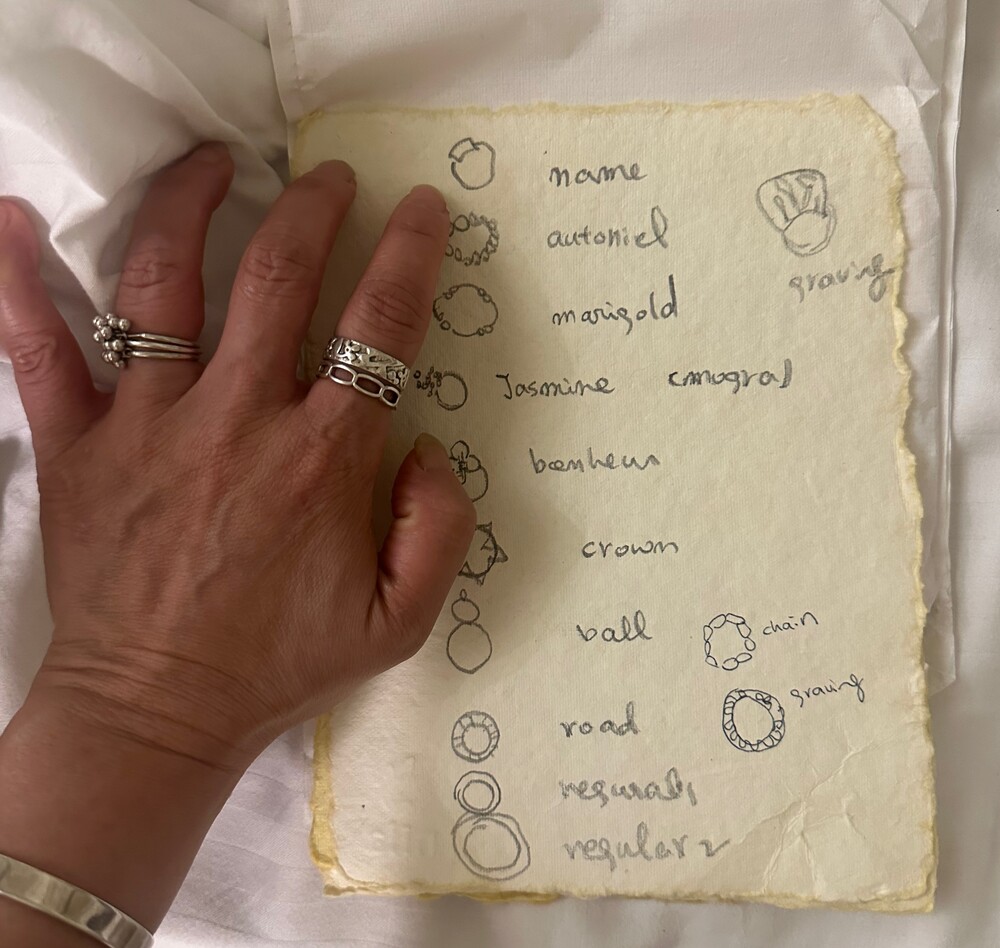 name
autoniel
graving
marigold
Jasmine
bonheur
crown
ball
chain
road
graving
regural1
regular 2